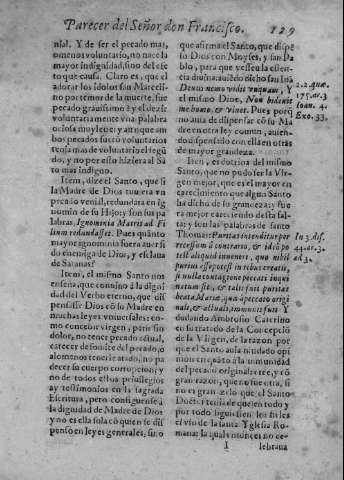 Parecer del Señor don Francisco. 129
nial. Y de ser el pecado mas, o
menos voluntario, no nace la
mayor indignidad, sino del efe
to que causa. Claro es, que el
adorar los idolos san Marceli-
no por temor de la muerte, fue
pecado grauissimo: y el dezir
voluntariamente vna palabra
ociosa muy leue: y aunque am
bos pecados sus tro voluntarios
do, y no por esso hiziera al Sã
to mas indigno.
Item, dize el Santo, que si
la Madre de Dios tuuiera vn
pecado venial, redundara en ig
nominia de su Hijo; y son sus pa
labras, Ignominia Matris ad Fi
lium redundasset. Pues quãnto
mayor ignominia fuera auer si
do enemiga de Dios, y esclaua
de Satanas?
Item, el mismo Santo nos
enseña, que conuino à la digni
dad del Verbo eterno, que dis
pensasse Dios con su Madre en
muchas leyes vniuersales: co-
mo concebir virgen, parir sin
dolor, no tener pecado actual,
carecer de fomite del pecado, o
alomenos tenerle atado, no pa
decer su cuerpo corrupcion; y
no de todos estos priuilegios
ay testimonios en la sagrada
Escritura, pero consiguense à
la dignidad de Madre de Dios
y no es ella sola cō quien se dis
pensò en leyes generales, sino
que afirma el Santo, que dispẽ
sò Dios con Moyses, y san Pa
blo, para que viesse la essen-
cia diuina, auiẽdo dicho san Iuã
Deum nemo vidit vnquam, Y
el mismo Dios, Non videbit
me homo, & viuet. Pues porq̃
no auia de dispensar cō su Ma
dre en otra ley comun, auien-
do dispensado con ella en otras
de mayor grandeza.
Item, es dotrina del mismo
Santo, que no pudo ser la Vir
gen mejor, que es el mayor en
carecimiento que algun Santo
ha dicho de su grandeza; y fue
ra mejor careciendo desta fal-
ta; y son las palabras de santo
Thomas: Puritas intenditur per
recessum à contrario, & ideò po
test aliquid inueniri, quo nihil
purius esse potest in rebus creatis,
si nulla contagione peccati inqui
natum sit, & talis fuit puritas
beatæ Mariæ, quæ à peccato origi
nali, & actuali, immunis fuit. Y
dudando Ambrosio Caterino
en su tratado de la Concepcio
de la Virgen, de la razon por
que el Santo auia mudado opi
pecado original
gran razon, que no fue otra, si
no el gran zelo que el Santo
Doctor tenia de que en todo y
por todo siguiessen los fieles
el vso de la santa Yglesia Ro-
mana: la qual entonces no ce-
I lebraua
2.2. quæ.
175. ar. 3
Ioan. 4.
Exo. 33.
In 3. dis.
44. ar. 3.
ad 3.